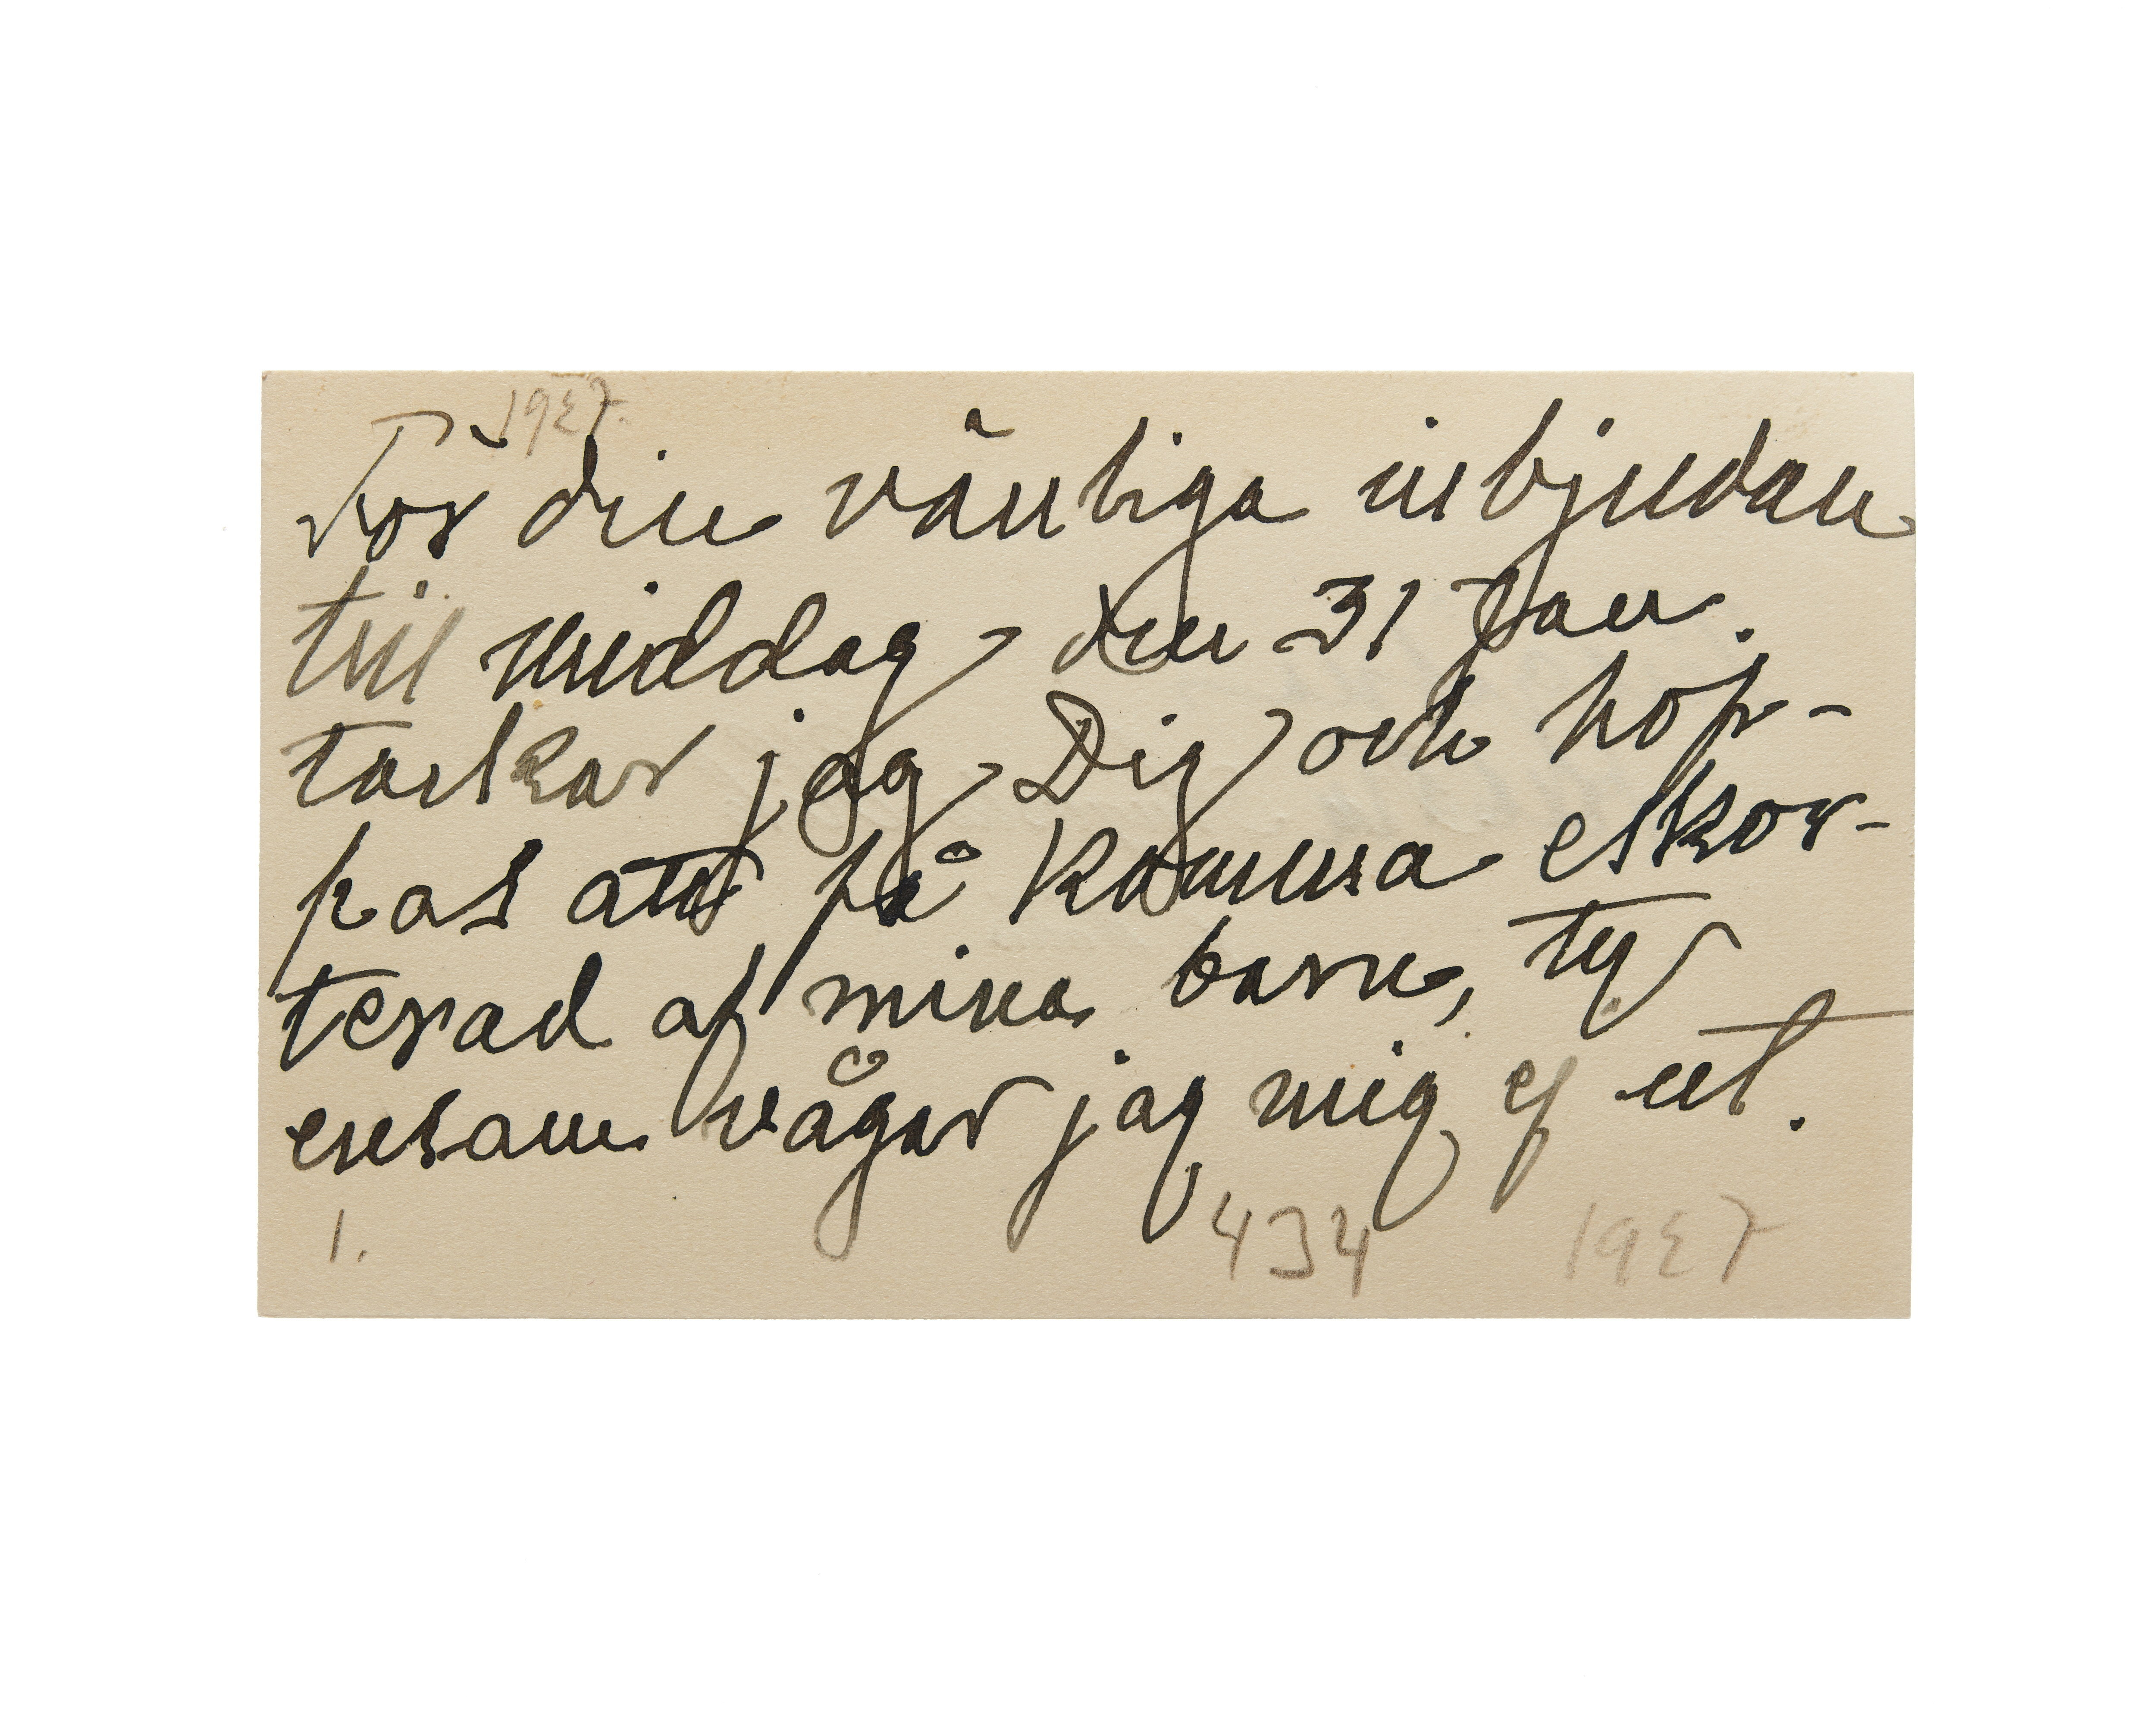 1927.
För din vänliga inbjudan
till middag den 31 Jan.
tackar jag Dig och hop-
pas att få komma eskor-
terad af mina barn, ty
ensam vågar jag mig ej ut.
1. 434 1927